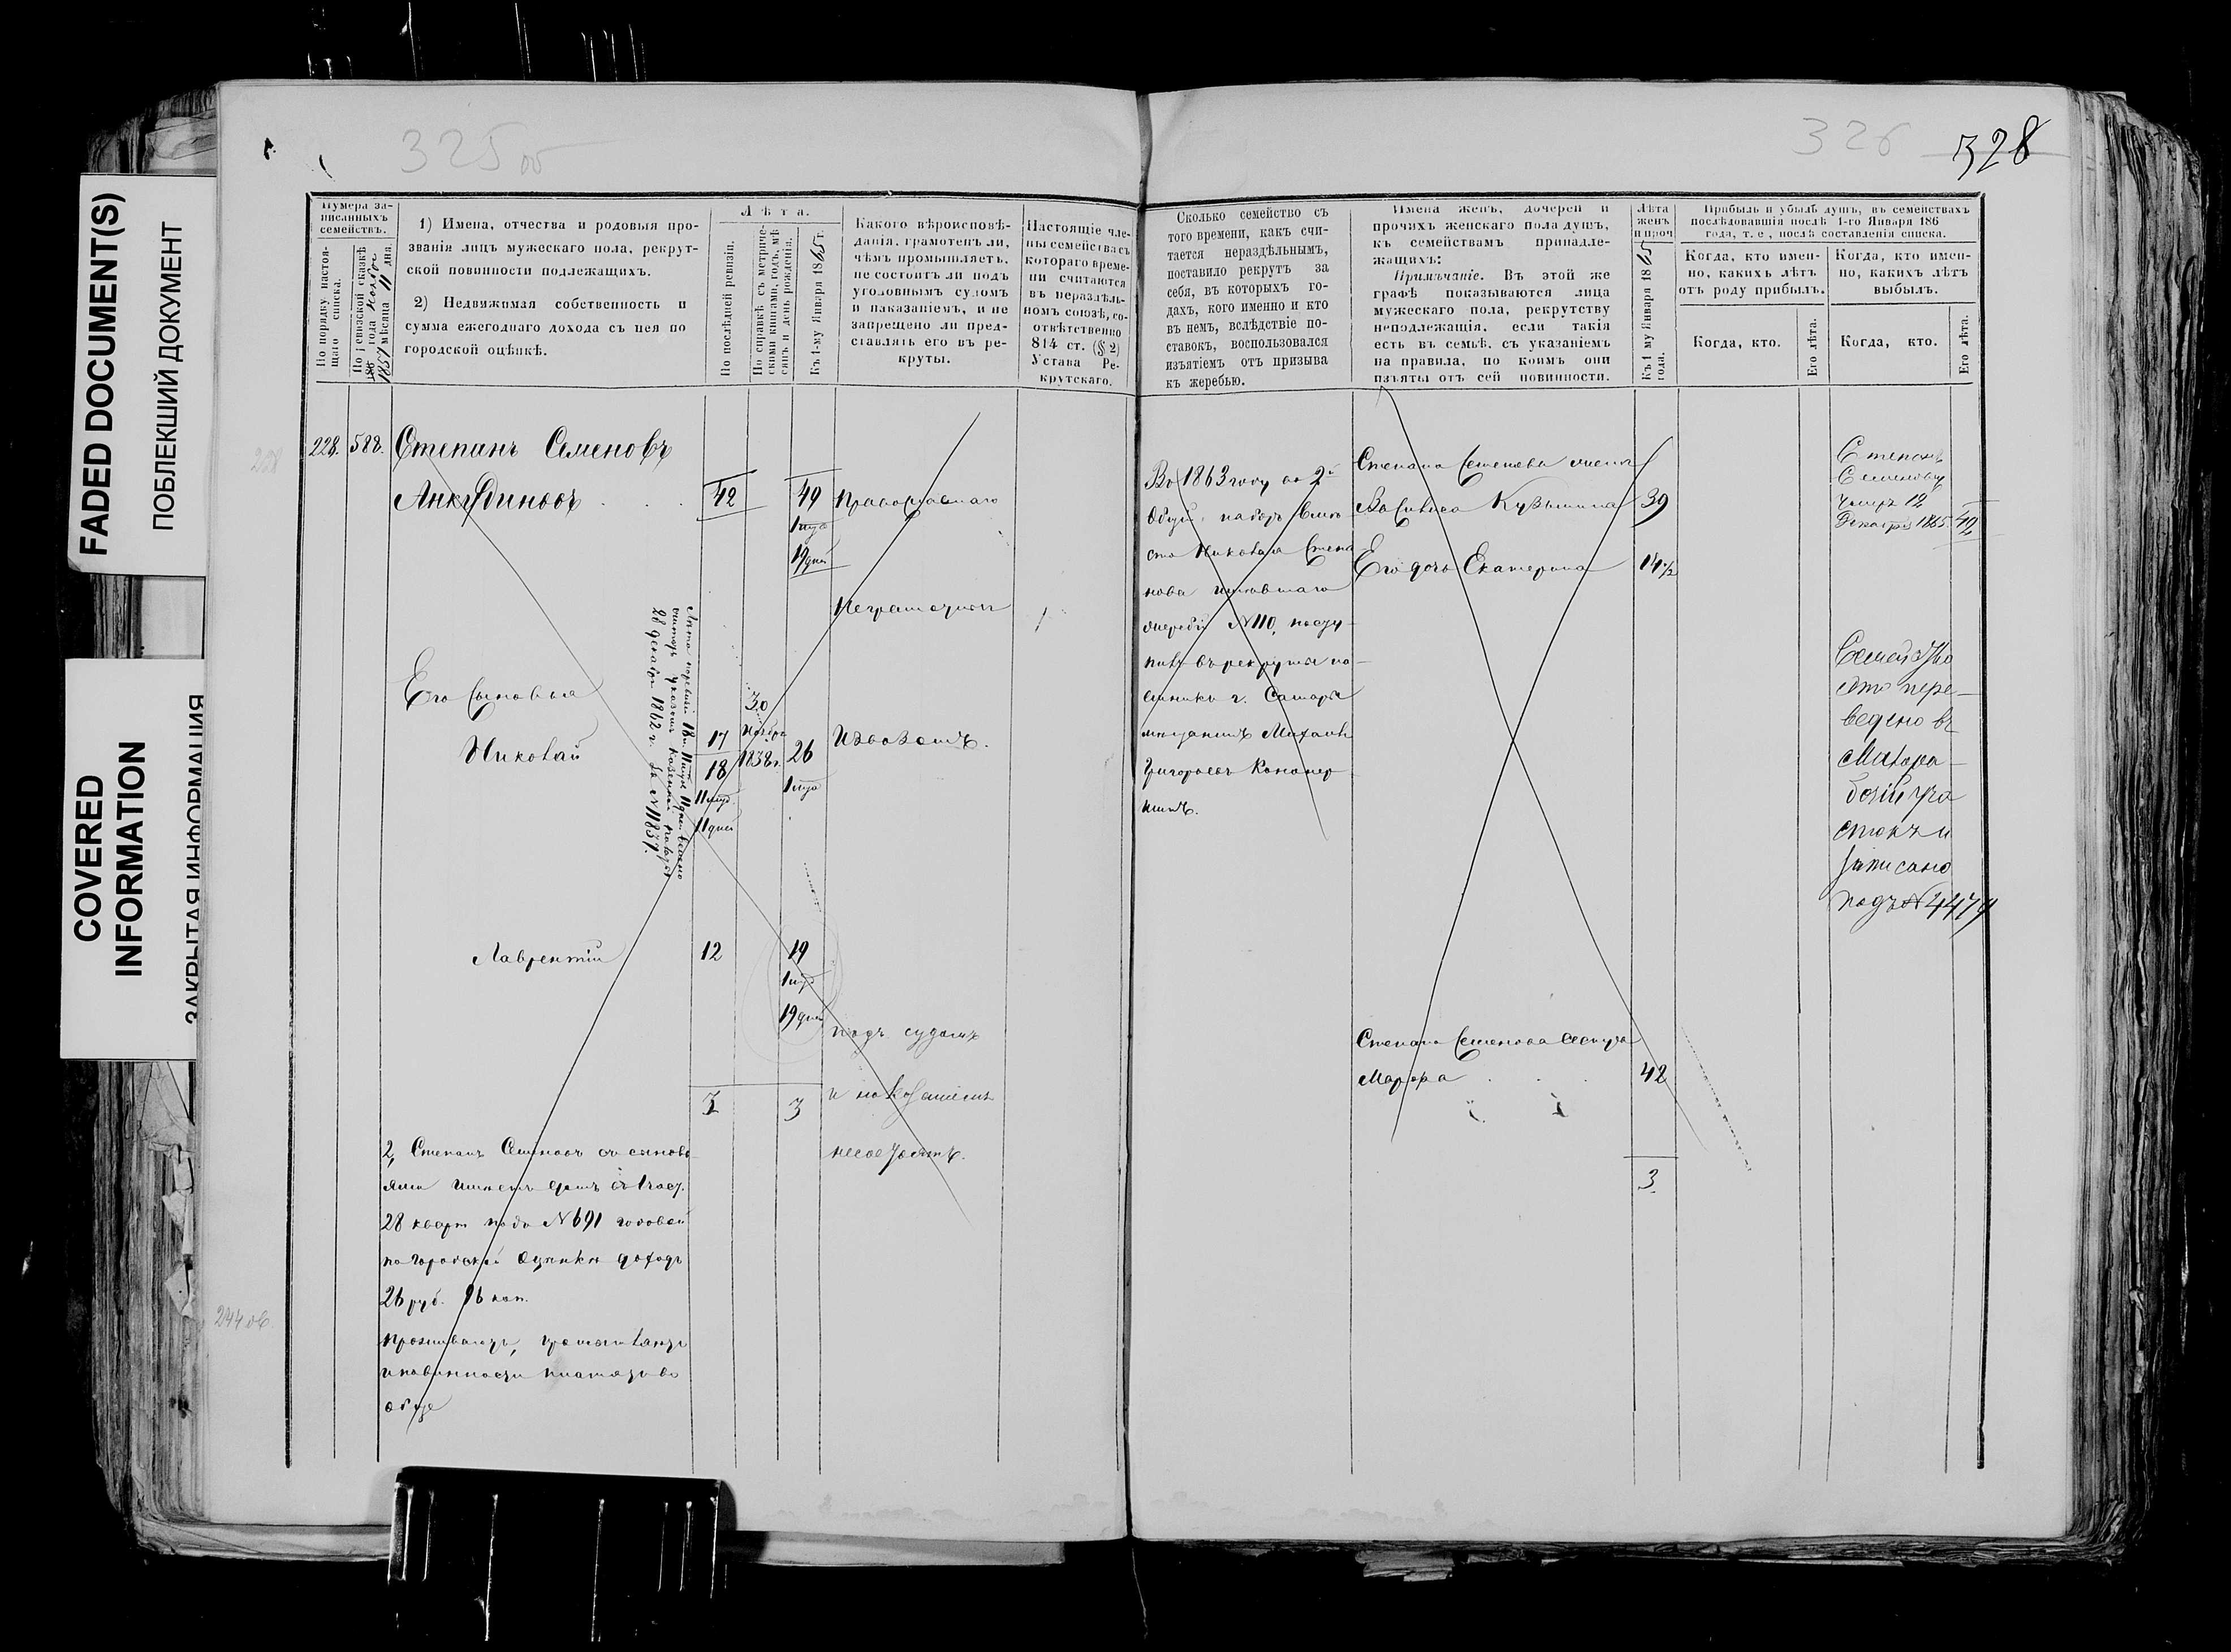 FADED DOCUMENT(S)
ПОБЛЕКШИЙ ДОКУМЕНТ
COVERED
INFORMATION
ЗАКРЫТАЯ ИНФОРМАЦИЯ
325 об
Нумера за-
писанныхъ
семействъ.
По порядку настоя-
щаго списка.
По ревизской сказкѣ
1857 года мѣсяца 11 дня.
1) Имена, отчества и родовыя про-
званія лицъ мужескаго пола, рекрут-
ской повинности подлежащихъ.
2) Недвижимая собственность и
сумма ежегоднаго дохода съ нея по
городской оцѣнкѣ.
Лѣта.
По послѣдней ревизіи.
По справкѣ съ метриче-
скими книгами, годъ, мѣ-
сяцъ и день рожденія.
Къ 1-му Января 1865 г.
Какого вѣроисповѣ-
данія, грамотенъ ли,
чѣмъ промышляетъ,
не состоитъ ли подъ
уголовнымъ судомъ
и наказаніемъ, и не
запрещено ли пред-
ставлять его въ ре-
круты.
Настоящіе чле-
ны семейства съ
котораго време-
ни считаются
въ нераздѣль-
номъ союзѣ, со-
отвѣтственно
814 ст. (§ 2)
Устава Ре-
крутскаго.
228
228. 588. Степанъ Семеновъ
Анкудиновъ 42 49 Православнаго
1 мѣ
19 дней
Неграмотенъ
Его сыновья
Николай 17 30 Ноября 1838 г. 26 Извозомъ.
18 1 мѣ
11 мѣ
11 дней
28 декабря 1862 г. за N 11837.
Лаврентій 12 19
1 мѣ
19 дней
подъ судомъ
и наказаніемъ
3 3
не состоитъ.
2, Степанъ Семеновъ съ сыновь-
ями имѣетъ домъ въ 1 част.
28 кварт подъ N 691 годовой
по городской оцѣнкѣ доходъ
26 руб. 96 коп.
Проживаютъ, промышляютъ
и повинности платятъ во
обще
244 об.
326 328
Сколько семейство съ
того времени, какъ счи-
тается нераздѣльнымъ,
поставило рекрутъ за
себя, въ которыхъ го-
дахъ, кого именно и кто
въ немъ, вслѣдствіе по-
ставокъ, воспользовался
изъятіемъ отъ призыва
къ жеребью.
Имена женъ, дочерей и
прочихъ женскаго пола душъ,
къ семействамъ принадле-
жащихъ:
Примѣчаніе. Въ этой же
графѣ показываются лица
мужескаго пола, рекрутству
неподлежащія, если такія
есть въ семьѣ, съ указаніемъ
на правила, по коимъ они
изъяты отъ сей повинности.
Лѣта
женъ
и проч
Къ 1 му Января 1865
года.
Прибыль и убыль душъ, въ семействахъ
послѣдовавшія послѣ 1-го Января 186
года, т. е., послѣ составленія списка.
Когда, кто имен-
но, какихъ лѣтъ
отъ роду прибылъ.
Когда, кто имен-
но, какихъ лѣтъ
выбылъ.
Когда, кто.
Его лѣта.
Когда, кто.
Его лѣта.
Во 1863 году во 2й
общій наборъ вмѣ-
сто Николая Степа-
нова имѣвшаго
жеребій N 110, посту-
пилъ въ рекруты на-
емникъ г. Самары
мѣщанинъ Михаилъ
Григорьевъ
Степана Семенова жена
Василиса Кузьмина 39
Его дочь Екатерина 14 1/2
Степана Семенова сестра
Марфа 42
3
Степанъ
Семеновъ
умеръ 12
Декабря 1865. 49
Семейство
это пере-
ведено въ
участокъ и
записано
подъ N 4474